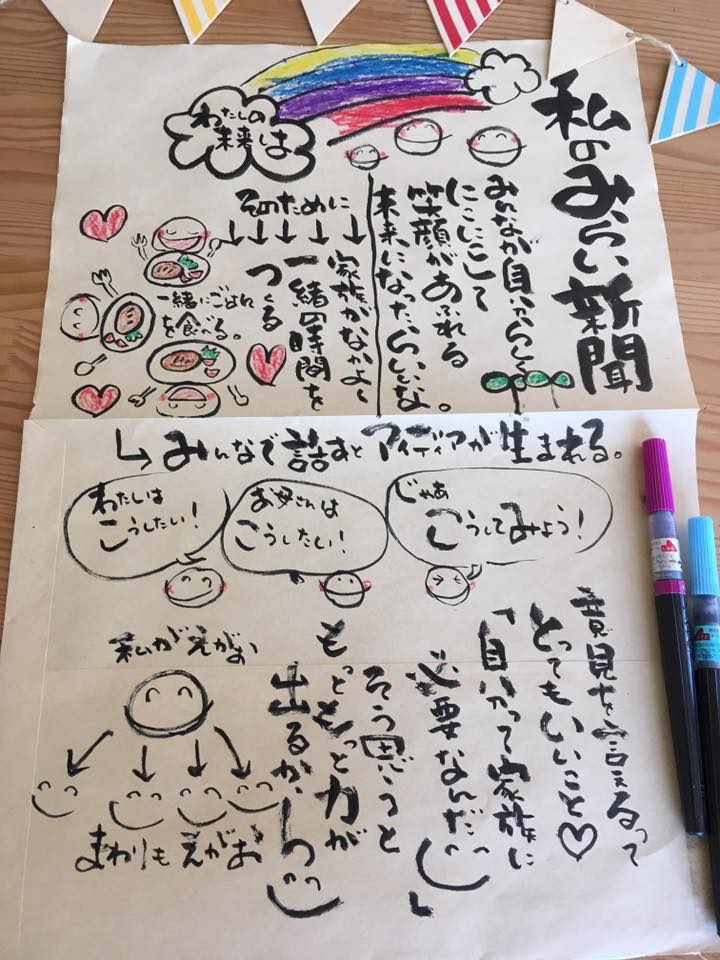 私のみらい新聞
わたしの
未来は
みんなが自分らしく
にこにこして
笑顔があふれる
未来になったらいいな。
そのために
家族がなかよく
一緒の時間を
つくる
一緒にごはん
を食べる。
みんなで話すとアイディアが生まれる。
じゃあ
こうしてみよう!
お母さんは
こうしたい!
わたしは
こうしたい!
意見を言えるって
とってもいいこと♡
「自分って家族に
必要なんだ」
そう思うと
もっともっと力が
出るから
私がえがお
まわりもえがお